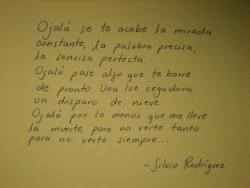 Ojalá se te acabe la mirada
constante, la palabra precisa,
la sonrisa perfecta.
Ojalá pase algo que te borre
de pronto. Una luz cegadora
un disparo de nieve.
Ojalá por lo menos que me lleve
la muerte, para no verte tanto
para no verte siempre...
- Silvio Rodríguez